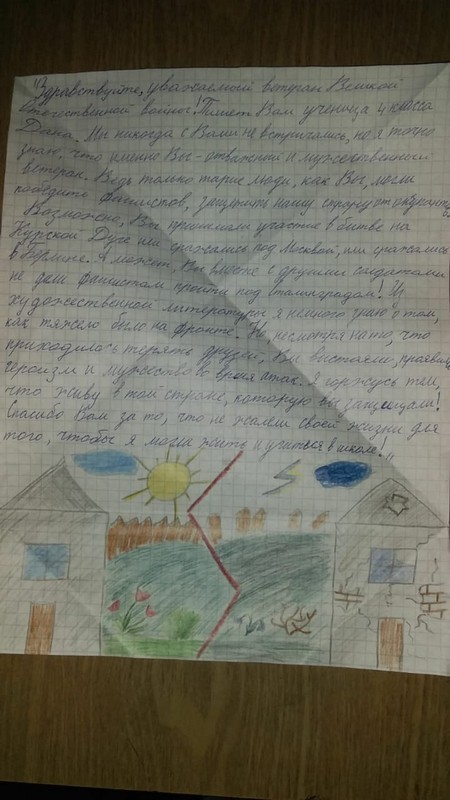 "Здравствуйте, уважаемый ветеран Великой
Отечественной войны! Пишет Вам ученица 4 класса
Дана. Мы никогда с Вами не встречались, но я точно
знаю, что именно Вы - отважный и мужественный
ветеран. Ведь только такие люди, как Вы, могли
победить фашистов, защитить нашу страну от оккупантов.
Возможно, Вы принимали участие в битве на
Курской Дуге или сражались под Москвой, или сражались
в Берлине. А может, Вы вместе с другими солдатами
не дали фашистам пройти под Сталинградом! Из
художественной литературы я немного знаю о том,
как тяжело было на фронте. Но, несмотря на то, что
приходилось терять друзей, Вы выстояли, проявили
героизм и мужество во время атак. Я горжусь тем,
что живу в той стране, которую вы защищали!
Спасибо Вам за то, что не жалели своей жизни для
того, чтобы я могла жить и учиться в школе!"